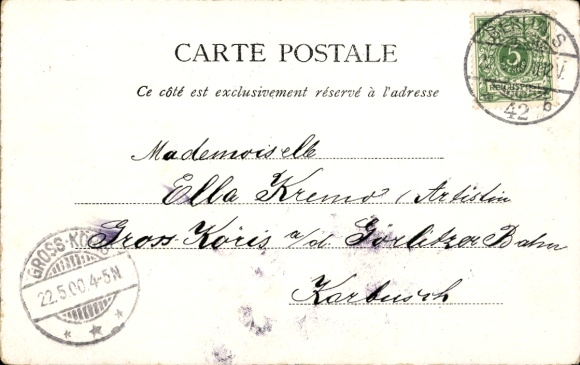 CARTE POSTALE
Ce côté est exclusivement réservé à l'adresse
5
42 b
Mademoiselle
Ella Kremo, Artistin
Gross-Köris a/d. Görlitzer Bahn
Karbusch
GROSS-KÖ
22.5.00.4-5N